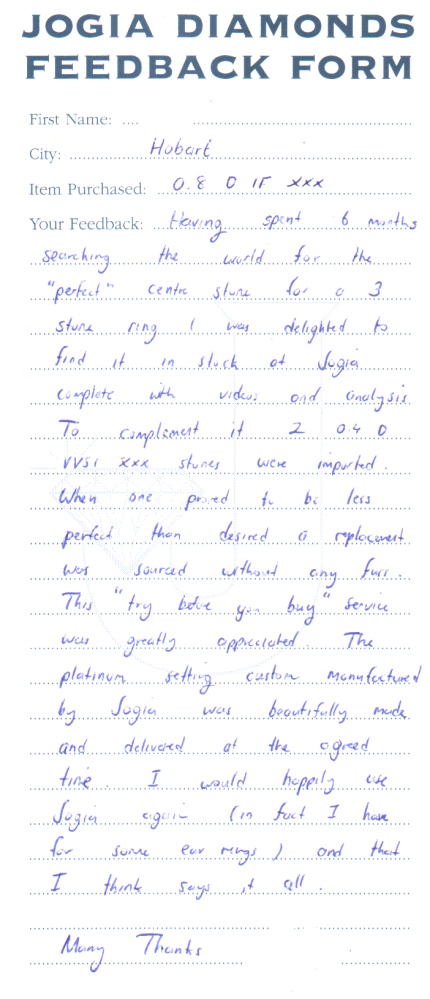 JOGIA DIAMONDS
FEEDBACK FORM
First Name: ....
City: Hobart
Item Purchased: 0.8 D IF XXX
Your Feedback: Having spent 6 months
searching the world for the
"perfect" centre stone for a 3
stone ring I was delighted to
find it in stock at Jogia
complete with videos and analysis.
To complement it 2 0.4 D
VVS1 XXX stones were imported.
When one proved to be less
perfect than desired a replacement
was sourced without any fuss.
This "try before you buy" service
was greatly appreciated. The
platinum setting custom manufactured
by Jogia was beautifully made
and delivered at the agreed
time. I would happily use
Jogia again (in fact I have
for some ear rings) and that
I think says it all.
Many Thanks